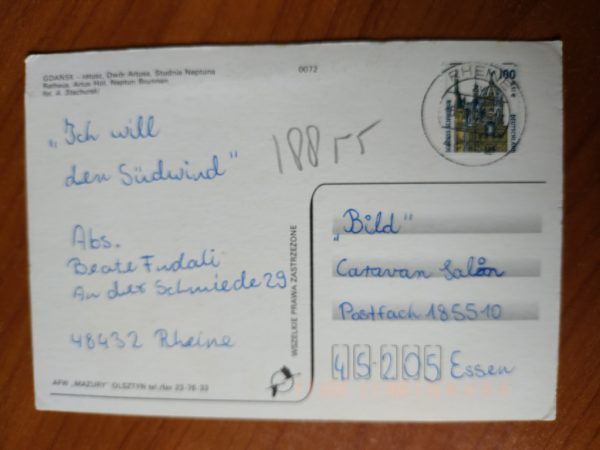 GDAŃSK - ratusz, Dwór Artusa, Studnia Neptuna
Rathaus, Artus Hof, Neptun Brunnen
fot. A. Stachurski
0072
RHEINE
100
DEUTSCHE
„Ich will
den Südwind"
188 55
Abs.
Beate Fudali
An der Schmiede 29
48432 Rheine
WSZELKIE PRAWA ZASTRZEŻONE
„Bild"
Caravan Salon
Postfach 185510
45205 Essen
AFW „MAZURY" OLSZTYN tel./fax 23-76-33